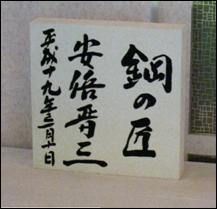 鋼の匠
安倍晋三
平成十九年三月十日